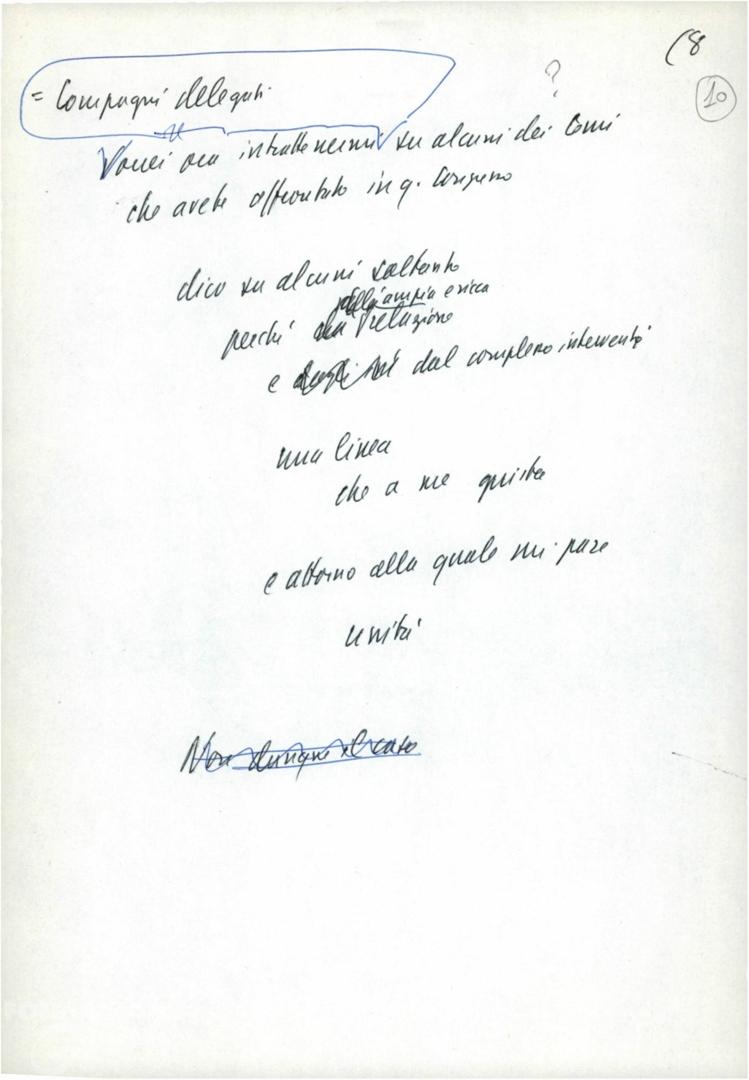 (8
10
?
= Compagni delegati
Vorrei ora intrattenermi su alcuni dei temi
che avete affrontato in q. Congresso
dico su alcuni soltanto
dalla ampia e ricca
perché relazione
e dal complesso interventi
una linea
che a me giusta
e attorno alla quale mi pare
unità
Non dunque il caso